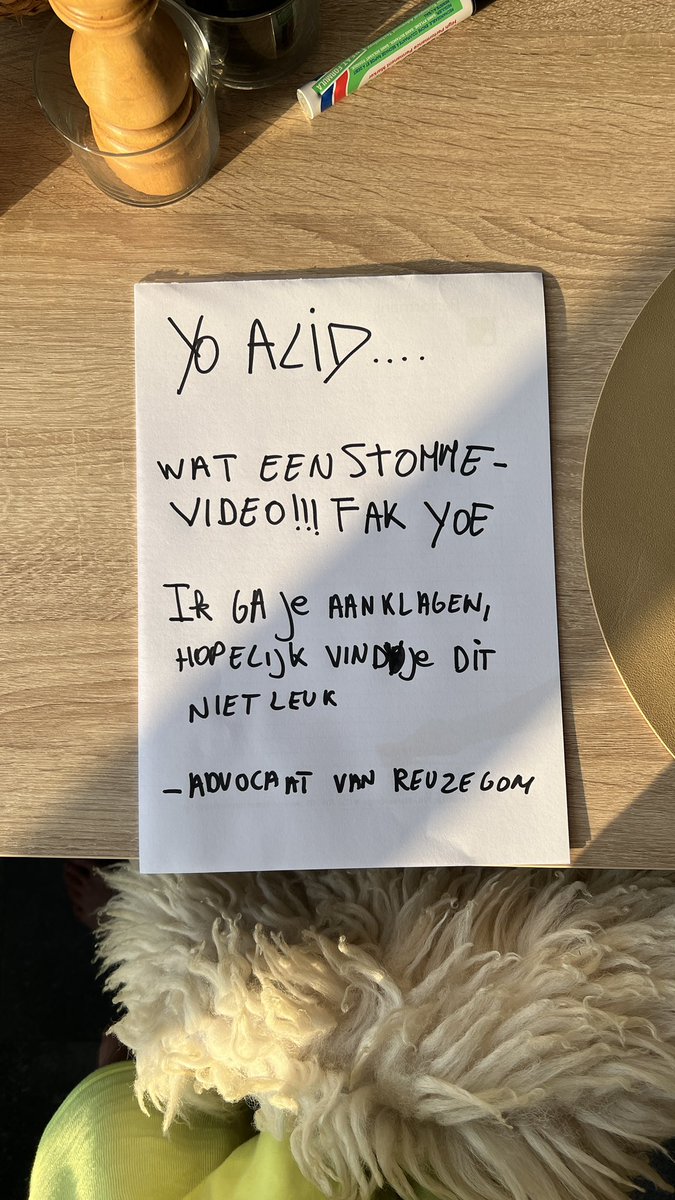 YO ACiD....
WAT EEN STOMME-
VIDEO!!! FAK YOE
IK GA je AANKLAGEN,
HOPELijk VIND je DiT
NIET LEUK
- ADVOCAAT VAN REUZEGOM